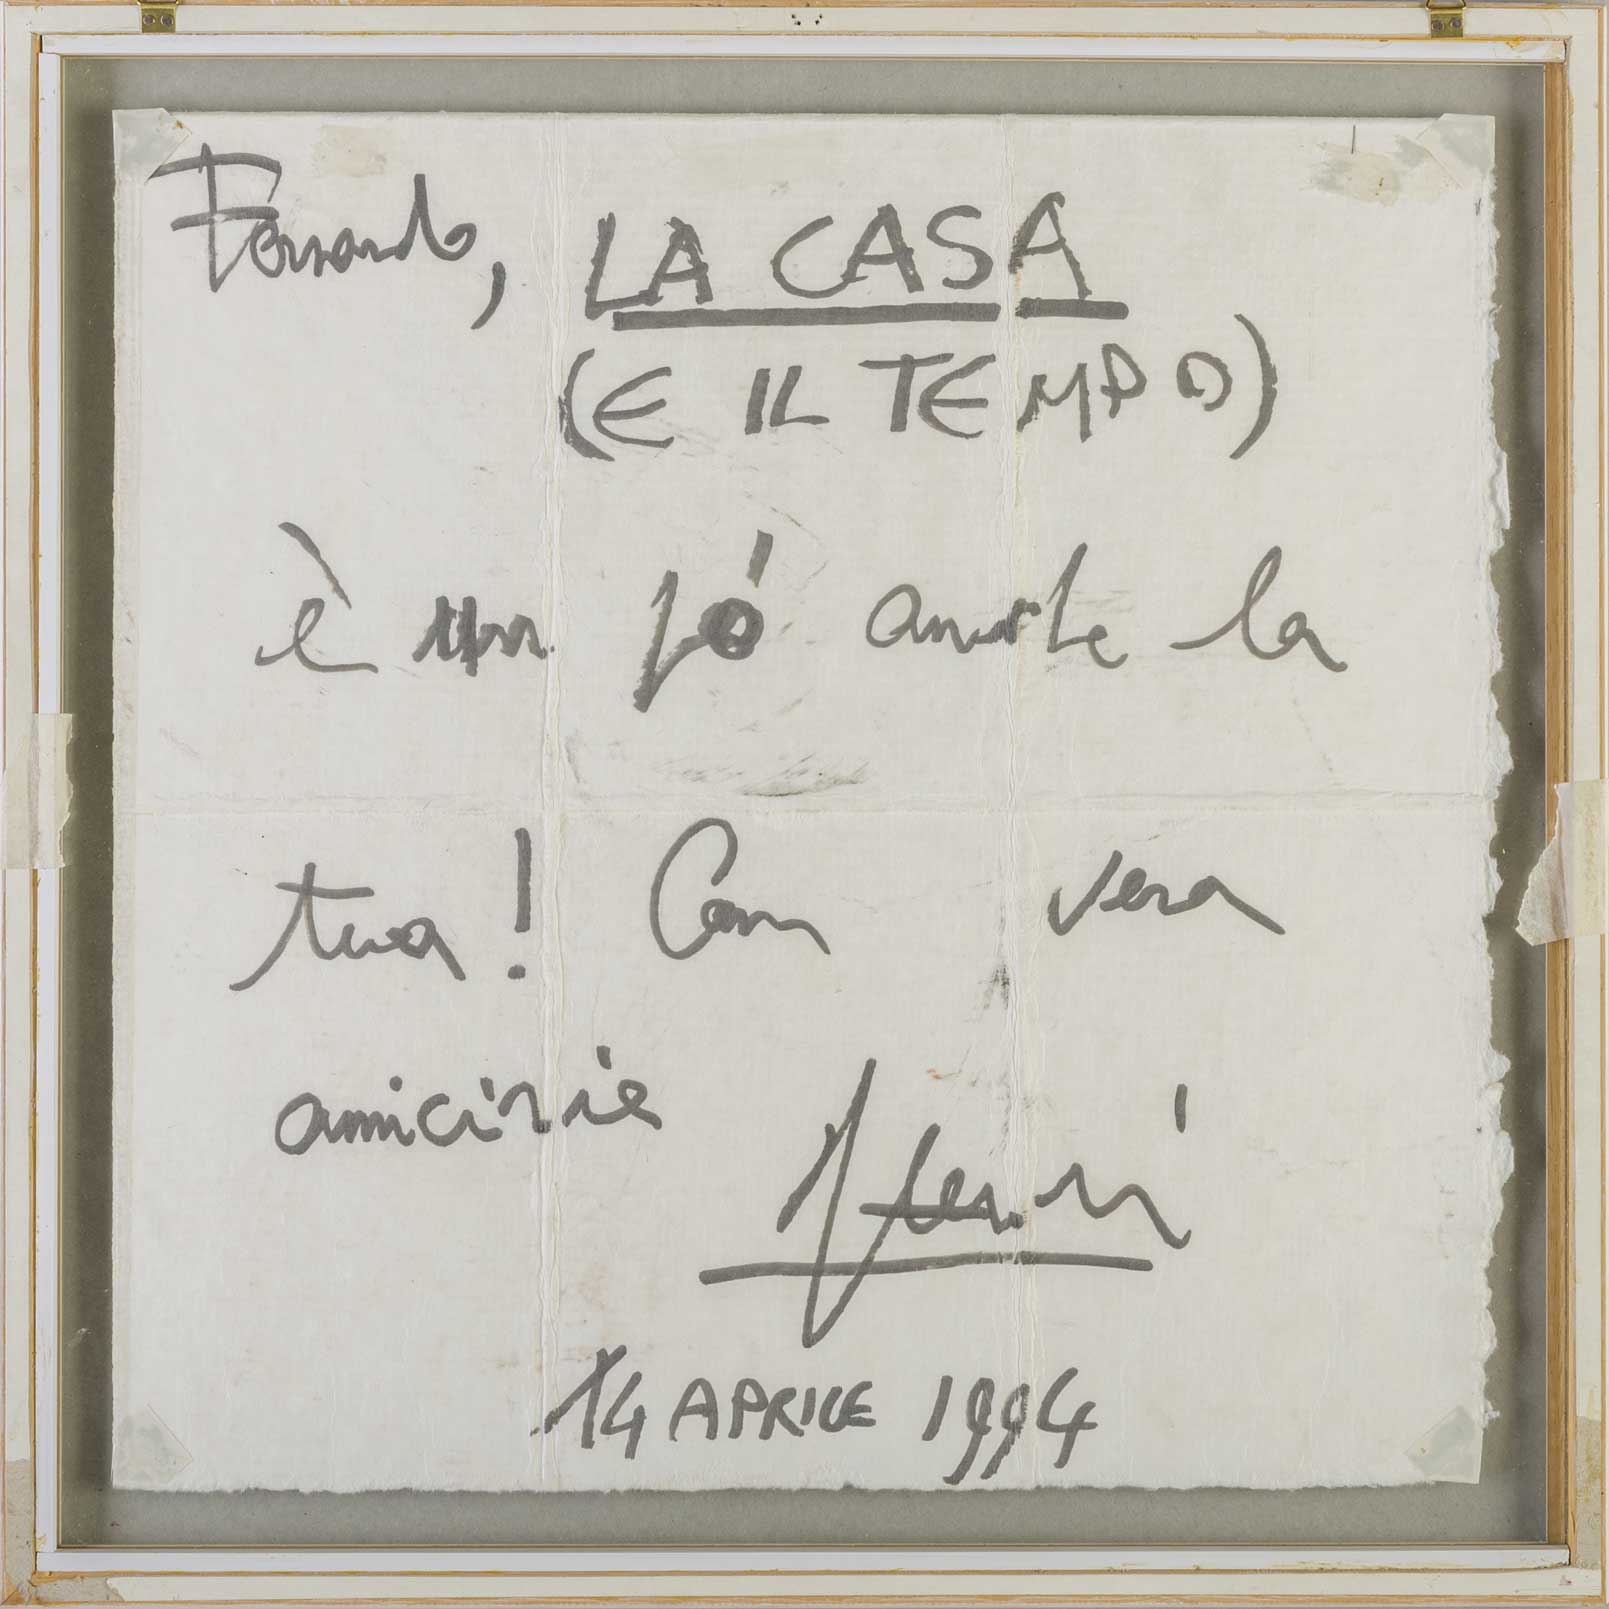 Fernando, LA CASA
(E IL TEMPO)
è un pó anche la
tua! Con vera
amicizia
14 APRILE 1994